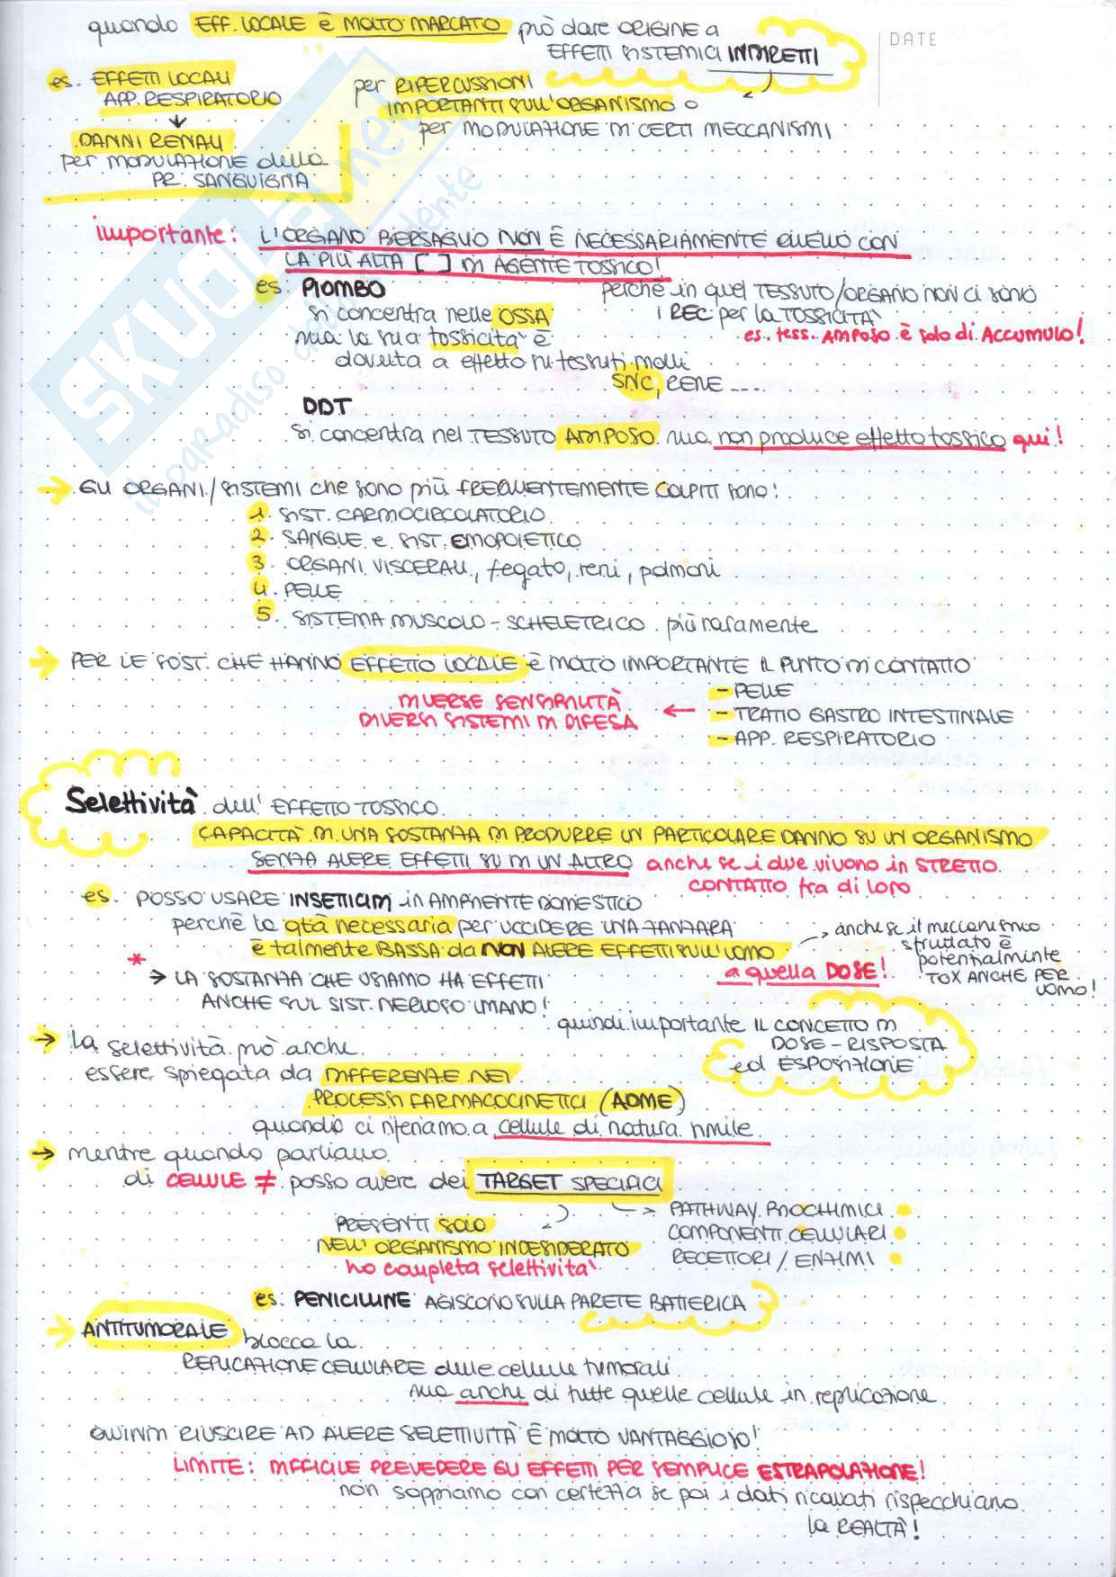 quando EFF. LOCALE è MOLTO MARCATO può dare ORIGINE a
EFFETTI SISTEMICI INDIRETTI
DATE
es. EFFETTI LOCALI
APP. RESPIRATORIO
↓
DANNI RENALI
per MODULAZIONE della
PR. SANGUIGNA
per RIPERCUSSIONI
IMPORTANTI SULL'ORGANISMO o
per MODULAZIONE DI CERTI MECCANISMI
importante: L'ORGANO BERSAGLIO NON È NECESSARIAMENTE QUELLO CON
LA PIÙ ALTA [ ] DI AGENTE TOSSICO!
es: PIOMBO
si concentra nelle OSSA
ma la sua tossicità è
dovuta a effetto su tessuti molli
SNC, RENE ....
perché in quel TESSUTO/ORGANO non ci sono
i REC per la TOSSICITÀ
es. tess. ADIPOSO è solo di ACCUMULO!
DDT
si concentra nel TESSUTO ADIPOSO ma non produce effetto tossico qui!
→ GLI ORGANI/SISTEMI che sono più FREQUENTEMENTE COLPITI sono:
1. SIST. CARDIOCIRCOLATORIO
2. SANGUE e SIST. EMOPOIETICO
3. ORGANI VISCERALI, fegato, reni, polmoni
4. PELLE
5. SISTEMA MUSCOLO-SCHELETRICO più raramente
→ PER LE SOST. CHE HANNO EFFETTO LOCALE è MOLTO IMPORTANTE IL PUNTO DI CONTATTO
- PELLE
- TRATTO GASTRO INTESTINALE
- APP. RESPIRATORIO
DIVERSE SENSIBILITÀ ←
DIVERSI SISTEMI DI DIFESA
Selettività dell'EFFETTO TOSSICO
CAPACITÀ DI UNA SOSTANZA DI PRODURRE UN PARTICOLARE DANNO SU UN ORGANISMO
SENZA AVERE EFFETTI SU DI UN ALTRO anche se i due vivono in STRETTO
CONTATTO fra di loro
es. POSSO USARE INSETTICIDI in AMBIENTE DOMESTICO
perché la qtà necessaria per UCCIDERE UNA ZANZARA
è talmente BASSA da NON AVERE EFFETTI SULL'UOMO
a quella DOSE!
→ anche se il meccanismo
sfruttato è
potenzialmente
TOX ANCHE PER
UOMO!
*
→ LA SOSTANZA CHE USIAMO HA EFFETTI
ANCHE SUL SIST. NERVOSO UMANO!
quindi importante IL CONCETTO DI
DOSE-RISPOSTA
ed ESPOSIZIONE
→ la selettività può anche
essere spiegata da DIFFERENZE NEI
PROCESSI FARMACOCINETICI (ADME)
quando ci riferiamo a cellule di natura simile
→ mentre quando parliamo
di CELLULE ≠ posso avere dei TARGET SPECIFICI
→ PATHWAY BIOCHIMICI
COMPONENTI CELLULARI
RECETTORI / ENZIMI
PRESENTI SOLO
NELL'ORGANISMO INDESIDERATO
ho completa selettività
es. PENICILLINE AGISCONO SULLA PARETE BATTERICA
→ ANTITUMORALE blocca la
REPLICAZIONE CELLULARE delle cellule tumorali
ma anche di tutte quelle cellule in replicazione
QUINDI RIUSCIRE AD AVERE SELETTIVITÀ È MOLTO VANTAGGIOSO!
LIMITE: DIFFICILE PREVEDERE GLI EFFETTI PER SEMPLICE ESTRAPOLAZIONE!
non sappiamo con certezza se poi i dati ricavati rispecchiano
la REALTÀ!
SKUOLA.net
il paradiso dello studente